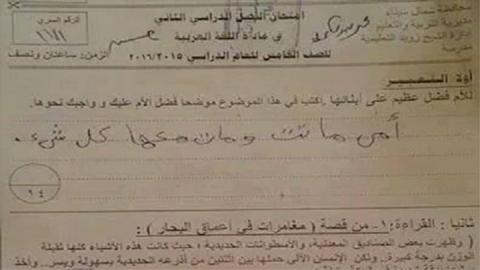 محافظة شمال سيناء
مديرية التربية والتعليم
إدارة الشيخ زويد التعليمية
مدرسة
امتحان الفصل الدراسي الثاني
في مادة اللغة العربية
للصف الخامس للعام الدراسي ٢٠١٦/٢٠١٥
الرقم السري
الزمن: ساعتان ونصف
أولا: التعبير
للأم فضل عظيم على أبنائها. اكتب في هذا الموضوع موضحا فضل الأم عليك و واجبك نحوها.
أمي ماتت ومات معها كل شيء.
١٤
ثانيا: القراءة: ١- من قصة ( مغامرات في أعماق البحار ) :
( وظهرت بعض الصناديق المعدنية، والأسطوانات الحديدية ؛ حيث كانت هذه الأشياء كلها ثقيلة
الوزن بدرجة كبيرة.. ولكن الإنسان الآلي حملها بين اثنتين من أذرعه الحديدية بسهولة ويسر.. وأخذ